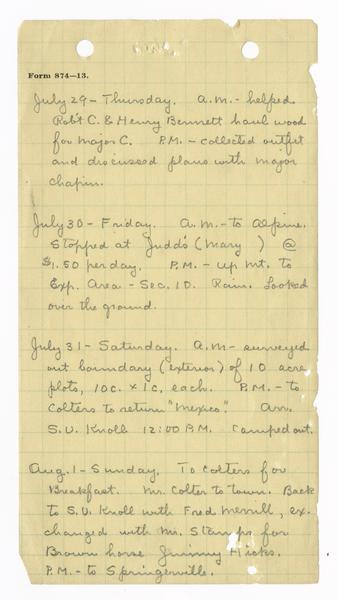 Form 874—13.
July 29 - Thursday. A.M. - helped
Rob't C. & Henry Bennett haul wood
for Major C. P.M. - collected outfit
and discussed plans with Major
Chapin.
July 30 - Friday. A.M. - to Alpine.
Stopped at Judd's (Mary ) @
$1.50 per day. P.M. - up Mt. to
Exp. Area - Sec. 10. Rain. Looked
over the ground.
July 31 - Saturday. A.M - surveyed
out boundary (exterior) of 10 acre
plots, 10c. x 1c, each. P.M. - to
Colters to return "Mexico". Arr.
S.U. Knoll 12:00 P.M. Camped out.
Aug. 1 - Sunday. To Colters for
Breakfast. Mr. Colter to town. Back
to S.U. Knoll with Fred Merrill, ex-
changed with Mr. Stamps for
Brown horse Jimmy Hicks.
P.M. - to Springerville.